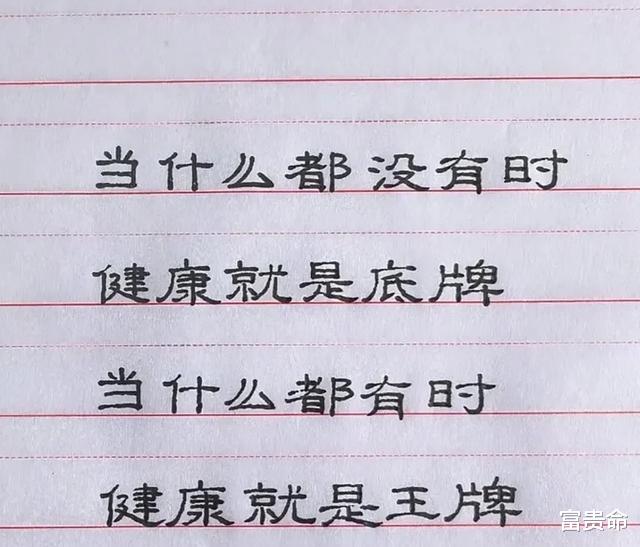 当什么都没有时
健康就是底牌
当什么都有时
健康就是王牌
富贵命